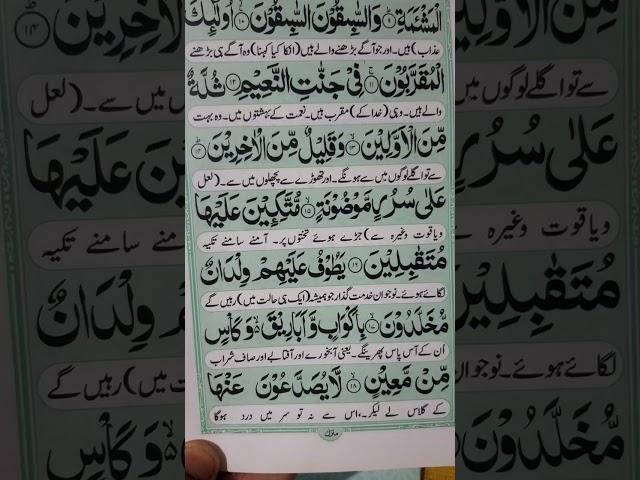 الْمَشْئَمَةِ ۙ وَالسّٰبِقُوْنَ السّٰبِقُوْنَ ۙ۱۰ اُولٰٓئِكَ
عذاب) ہیں۔ اور جو آگے بڑھنے والے ہیں (انکا کیا کہنا) وہ آگے ہی بڑھنے
الْمُقَرَّبُوْنَ ۱۱ فِیْ جَنّٰتِ النَّعِیْمِ ۱۲ ثُلَّةٌ
والے ہیں۔ وہی (خدا کے) مقرب ہیں۔ نعمت کے بہشتوں میں۔ وہ بہت
مِّنَ الْاَوَّلِیْنَ ۱۳ وَقَلِیْلٌ مِّنَ الْاٰخِرِیْنَ ۱۴
سے تو اگلے لوگوں میں سے ہونگے۔ اور تھوڑے سے پچھلوں میں سے۔ (لعل
عَلٰی سُرُرٍ مَّوْضُوْنَةٍ ۱۵ مُّتَّكِـِٕیْنَ عَلَیْهَا
و یاقوت وغیرہ سے) جڑے ہوئے تختوں پر۔ آمنے سامنے تکیہ
مُتَقٰبِلِیْنَ ۱۶ یَطُوْفُ عَلَیْهِمْ وِلْدَانٌ
لگائے ہوئے۔ نوجوان خدمت گذار جو ہمیشہ (ایک ہی حالت میں) رہیں گے
مُّخَلَّدُوْنَ ۱۷ بِاَكْوَابٍ وَّ اَبَارِیْقَ ۙ۵ وَ كَاْسٍ
اُن کے آس پاس پھرینگے۔ یعنی آبخورے اور آفتابے اور صاف شراب
مِّنْ مَّعِیْنٍ ۱۸ لَّا یُصَدَّعُوْنَ عَنْهَا
کے گلاس لے لیکر۔ اس سے نہ تو سر میں درد ہوگا
منزل